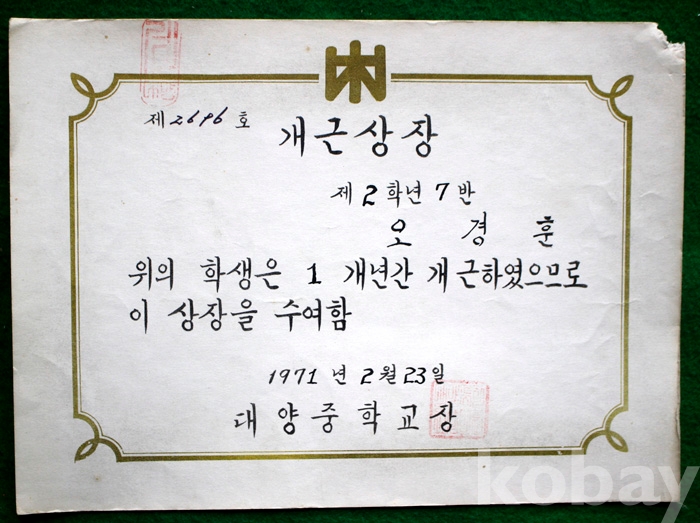 제 2696 호
개근상장
제 2 학년 7 반
오 경 훈
위의 학생은 1 개년간 개근하였으므로
이 상장을 수여함
1971 년 2 월 23 일
대양중학교장
kobay